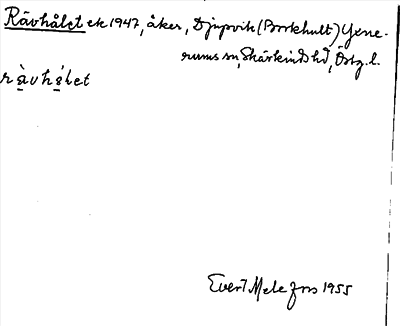 Rävhålet ek 1947, åker, Djupvik (Borkhult) Yxne-
rums sn, Skärkinds hd, Östg.l.
rä̀vhǻlet
Evert Melefors 1955